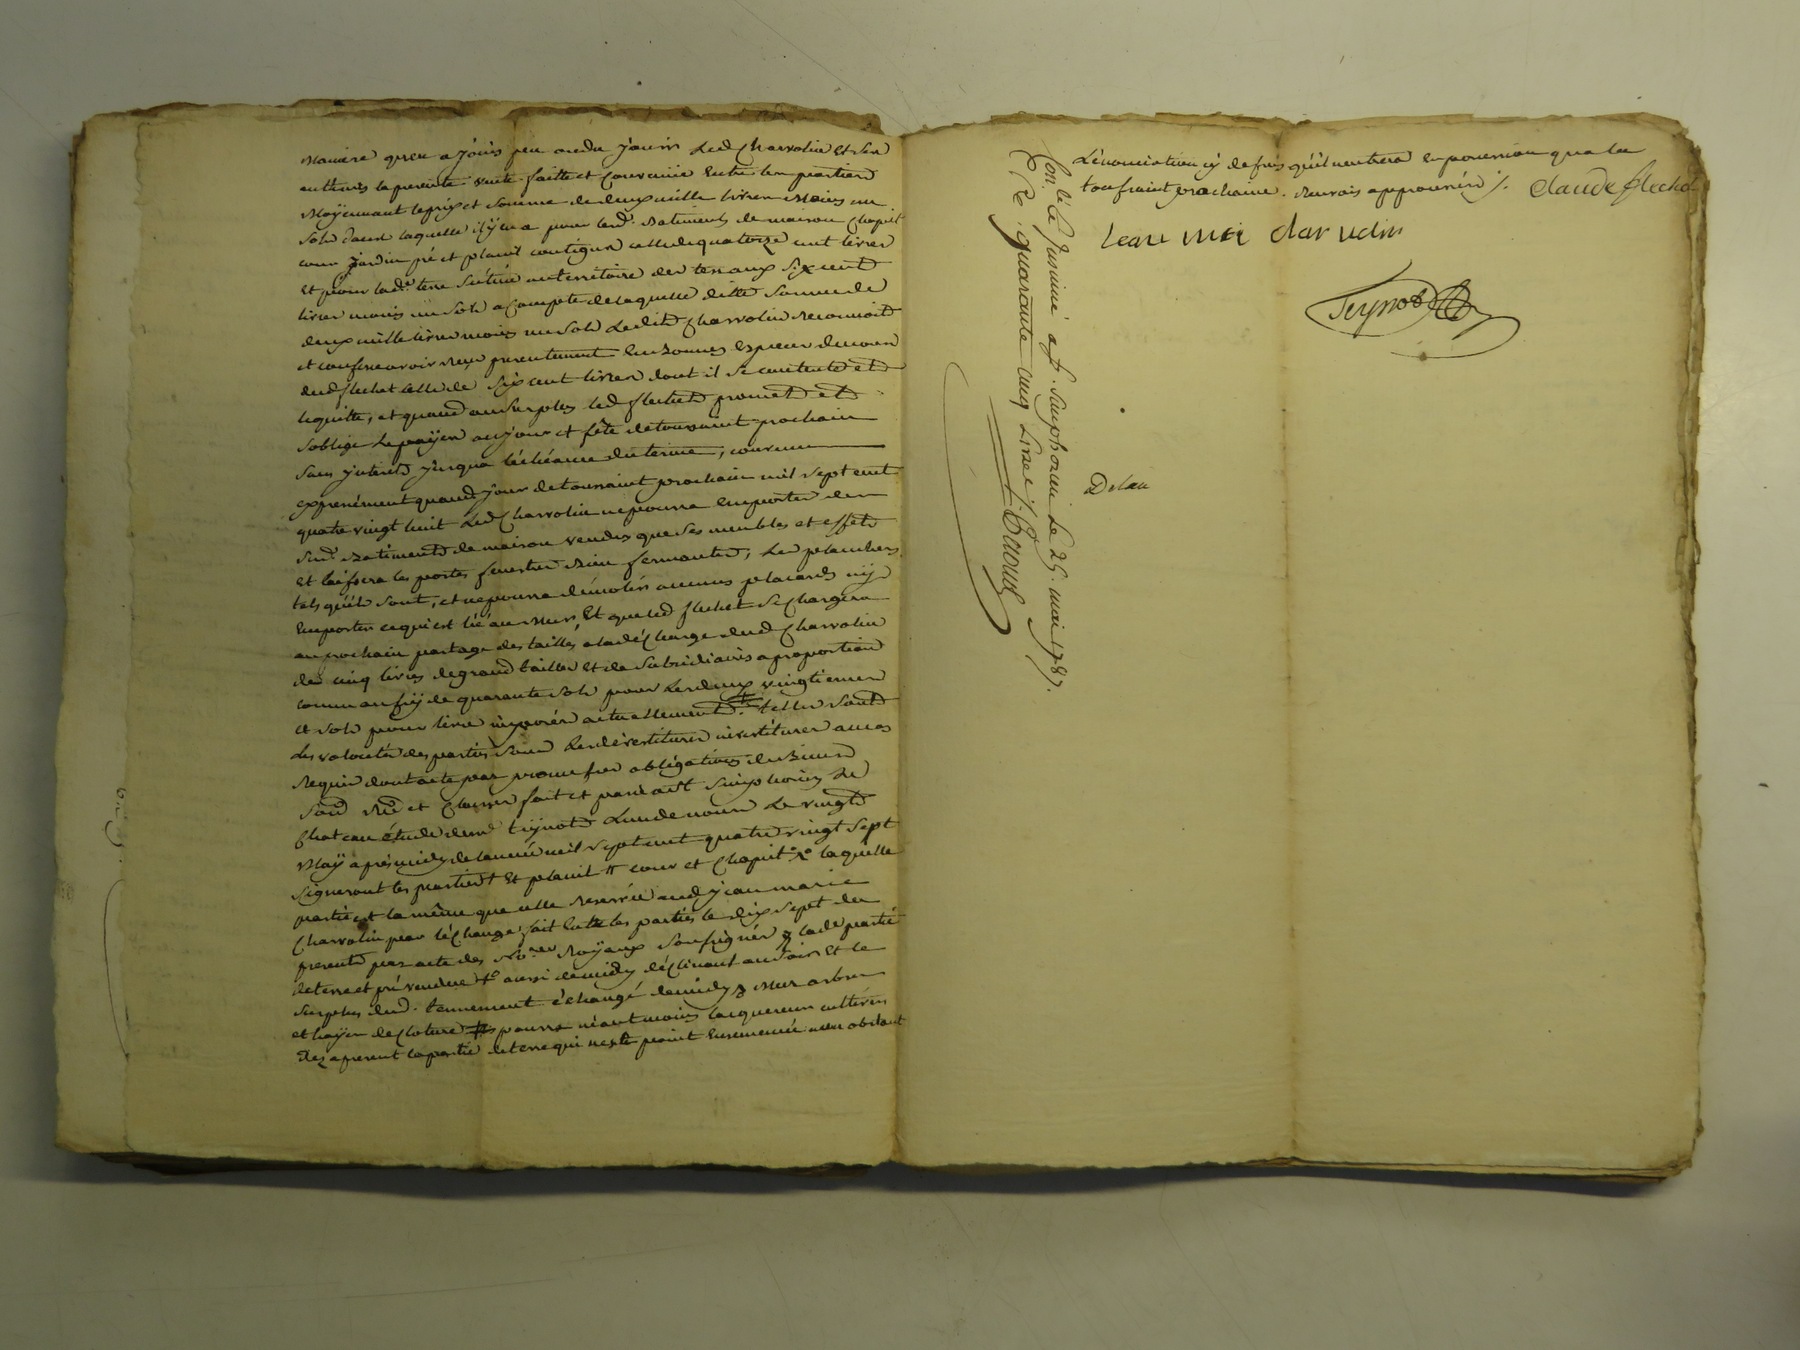 maniere qu'en a jouis peu ou du jouir Led Charvolin et ses
autheurs la presente vente faitte et convenüe Entre les parties
Moÿennant le prix et somme de deux mille livres Moins un
sols dans laquelle il ÿ en a pour lesd. Batiments de maison Chapit
cour Jardin pré et plassit contigus celle de quatorze cent livres
Et pour lad.e terre Sitüée au territoire des terraux Six cent
livres moins un Sols a Compte de laquelle ditte Somme de
deux mille livres moins un sols Ledit Charvolin reconnoit
et confesse avoir reçu presentement En Bonnes Especes de cours
dud flechet celle de Six cent livres dont il se contente et
le quitte, et quand au Surplus led flechet promet et
soblige Le paÿer au jour et fête de toussaint prochain
Sans jnterets jusqua l'échéance du terme, convenu
expressément quaud jour de toussaint prochain mil sept cent
quatre vingt huit Led Charvolin ne pourra Emporter des
Susd. Batiments de maison vendus que ses meubles et effets
et laissera les portes fenestres Bien fermantes, Les planchers
tels qu'ils sont, et ne pourra démolir aucuns placards nÿ
Emporter ce qui est lié au Murs, Et que led flechet se Chargera
au prochain partage des tailles a la décharge dud Charvolin
de cinq livres de grand tailles et de Subsidiaires a proportion
comm aussÿ de quarante sols pour Les deux vingtiemes
et sols pour livre imposés actuellement. telles sont
Les volontés des parties sous Les dévestitures investitures au cas
Requis dont acte par promesses obligations de Biens
Soum. Ren. et Clauses fait et passé a St Simphorien Le
Chateau étude de me teÿnot L'un de nous Le vingt
Maÿ après midÿ de l'année mil sept cent quatre vingt sept
Signeront les parties Et plassit # cour et Chapit laquelle
partie est la même que celle reservée aud jean marie
Charvolin par l'échange fait Entre les parties le dix sept du
present par acte des No.res Roÿaux soussignés lade partie
de terre et pré vendüe aussi de midÿ déclinant au soir Et le
surplus dud. tennement échangé de midÿ Mur arbres
et haÿes de cloture pourra néantmoins lacquereur cultiver
des a present la partie de terre qui ne s'est point Ensemencée non obstant
L'énonciation cÿ dessus qu'il n'entrera en possession qua la
toussaint prochaine. renvois approuvés /. Claude flechet
Jean mri charvolin
Teynot
Con. lé & Jnsinué a St. Simphorien Le 25. mai 1787.
& Re quarante cinq Livres
Delau